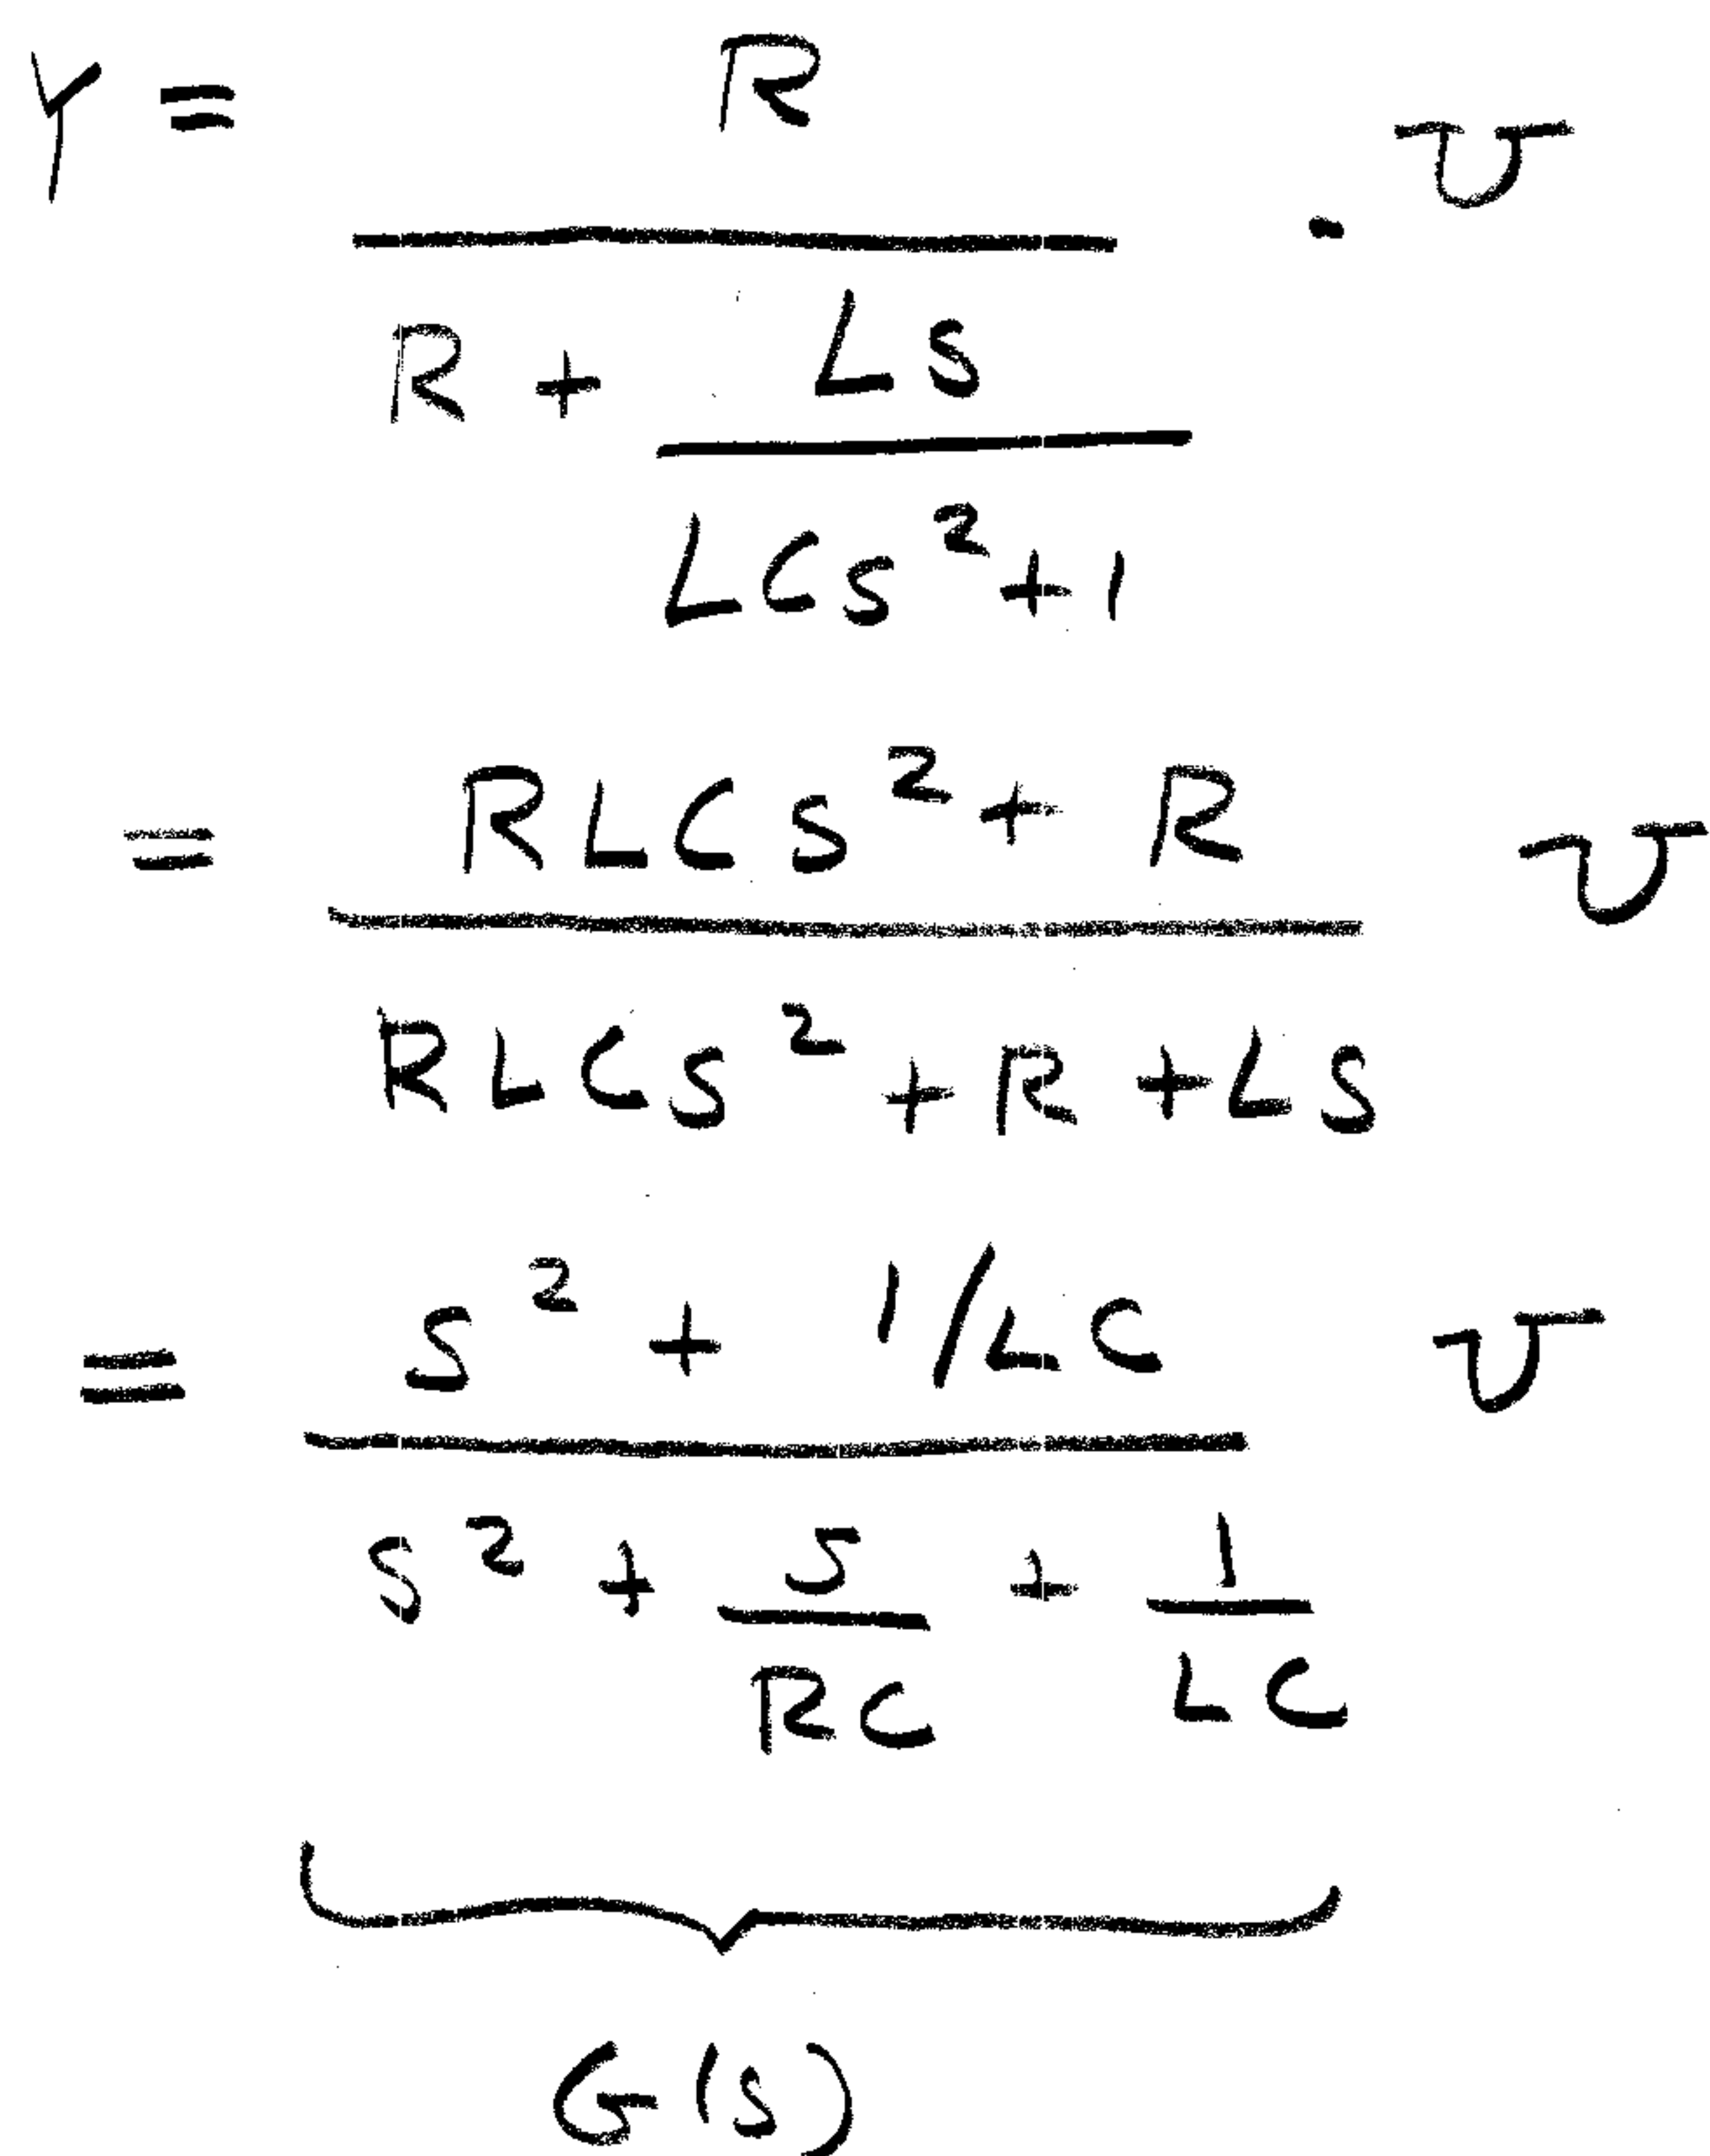 Y = R / (R + Ls / (LCs² + 1)) · U
= (RLCs² + R) / (RLCs² + R + Ls) U
= (s² + 1/LC) / (s² + s/RC + 1/LC) U
G(s)